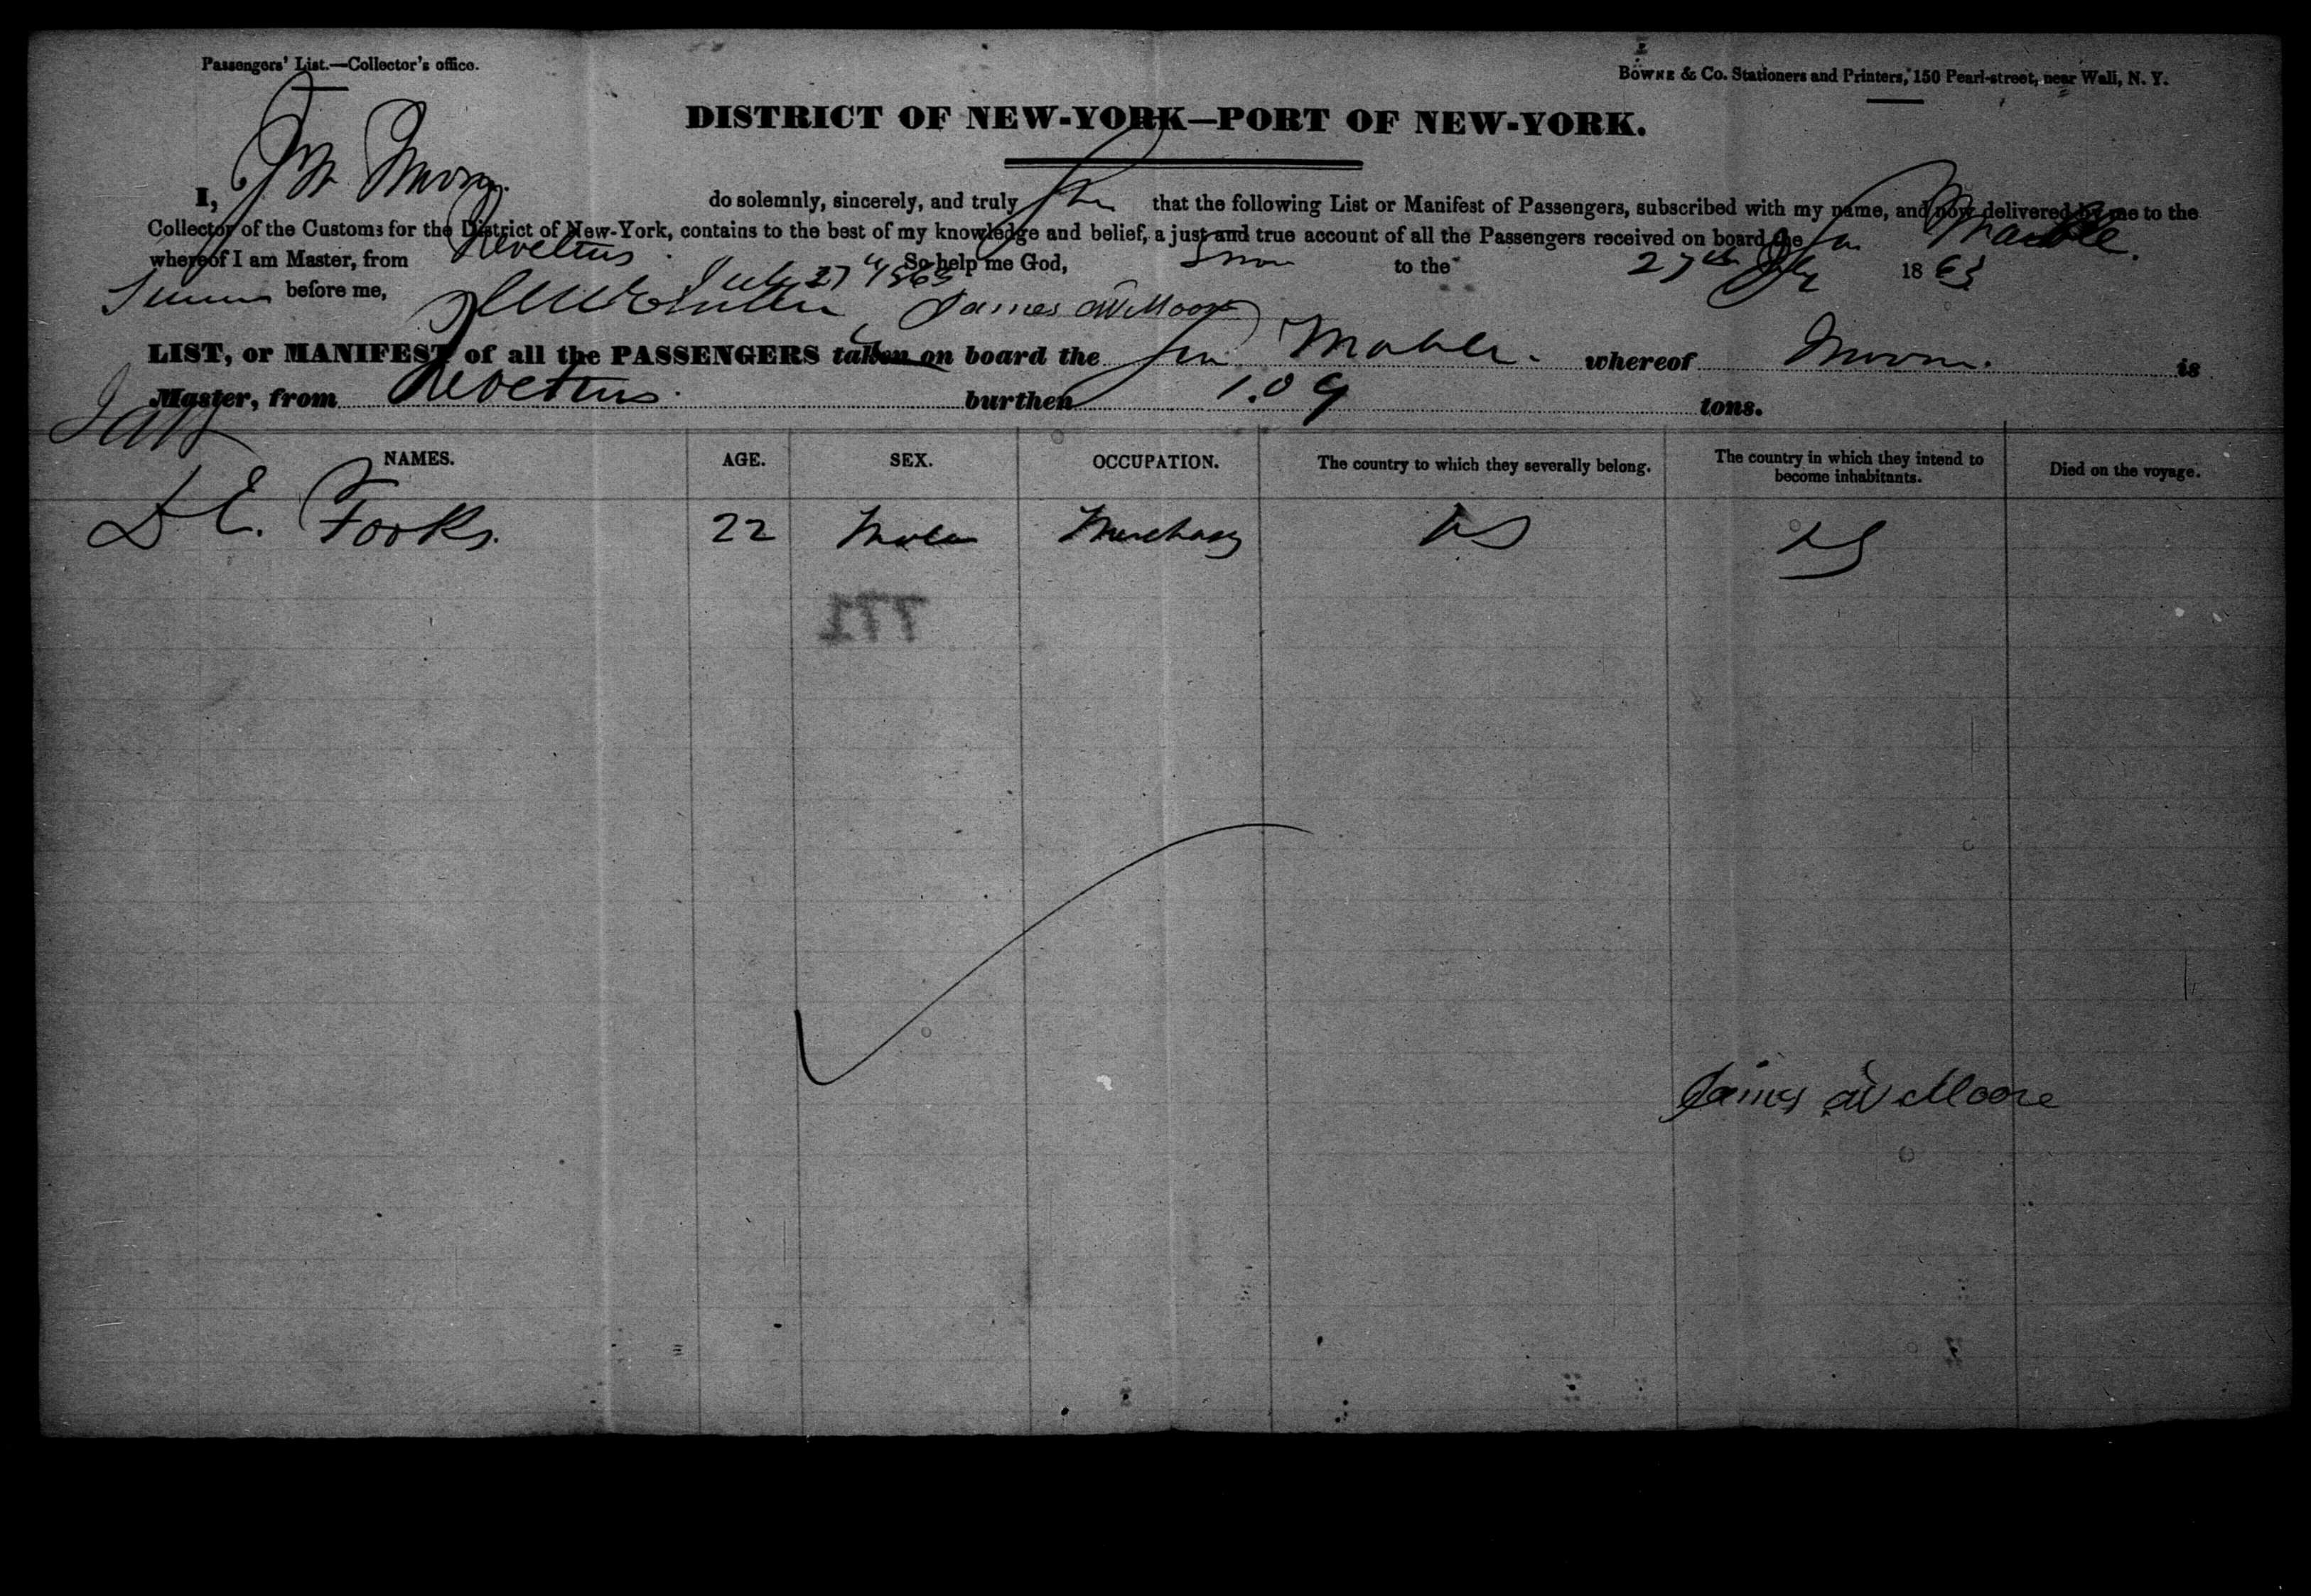 Passengers' List.—Collector's office.
BOWNE & Co. Stationers and Printers, 150 Pearl-street, near Wall, N. Y.
DISTRICT OF NEW-YORK—PORT OF NEW-YORK.
I, J W Moore do solemnly, sincerely, and truly that the following List or Manifest of Passengers, subscribed with my name, and now delivered by me to the
Collector of the Customs for the District of New-York, contains to the best of my knowledge and belief, a just and true account of all the Passengers received on board the
whereof I am Master, from Nuevitas. So help me God, to the 27th July 1863
before me, July 27 1863 James W Moore
LIST, or MANIFEST of all the PASSENGERS taken on board the whereof Moore. is
Master, from Nuevitas. burthen 109 tons.
NAMES. AGE. SEX. OCCUPATION. The country to which they severally belong. The country in which they intend to become inhabitants. Died on the voyage.
D E. Fooks. 22 Male Merchant US US
771
James W Moore